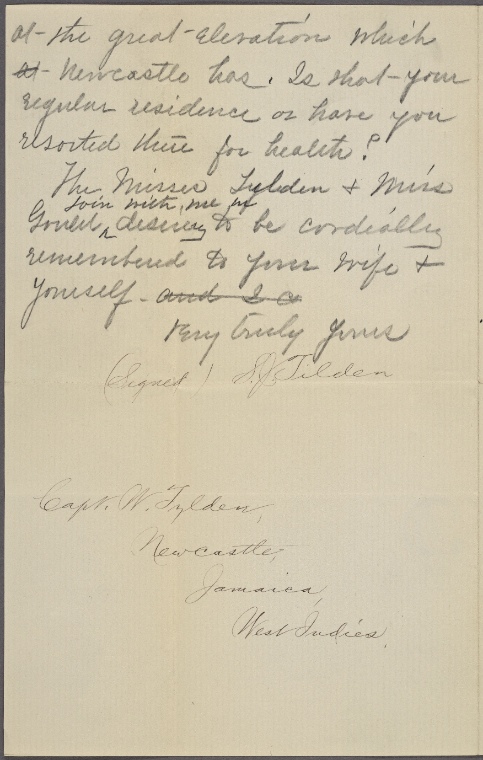 at the great elevation which
at Newcastle has. Is that your
regular residence or have you
resorted there for health?
The Misses Tylden & Miss
join with me in
desiring to be cordially
remembered to your wife &
yourself. and I a
Very truly yours
(Signed) S. J. Tilden
Capt. W. Tylden,
Newcastle,
Jamaica,
West Indies.